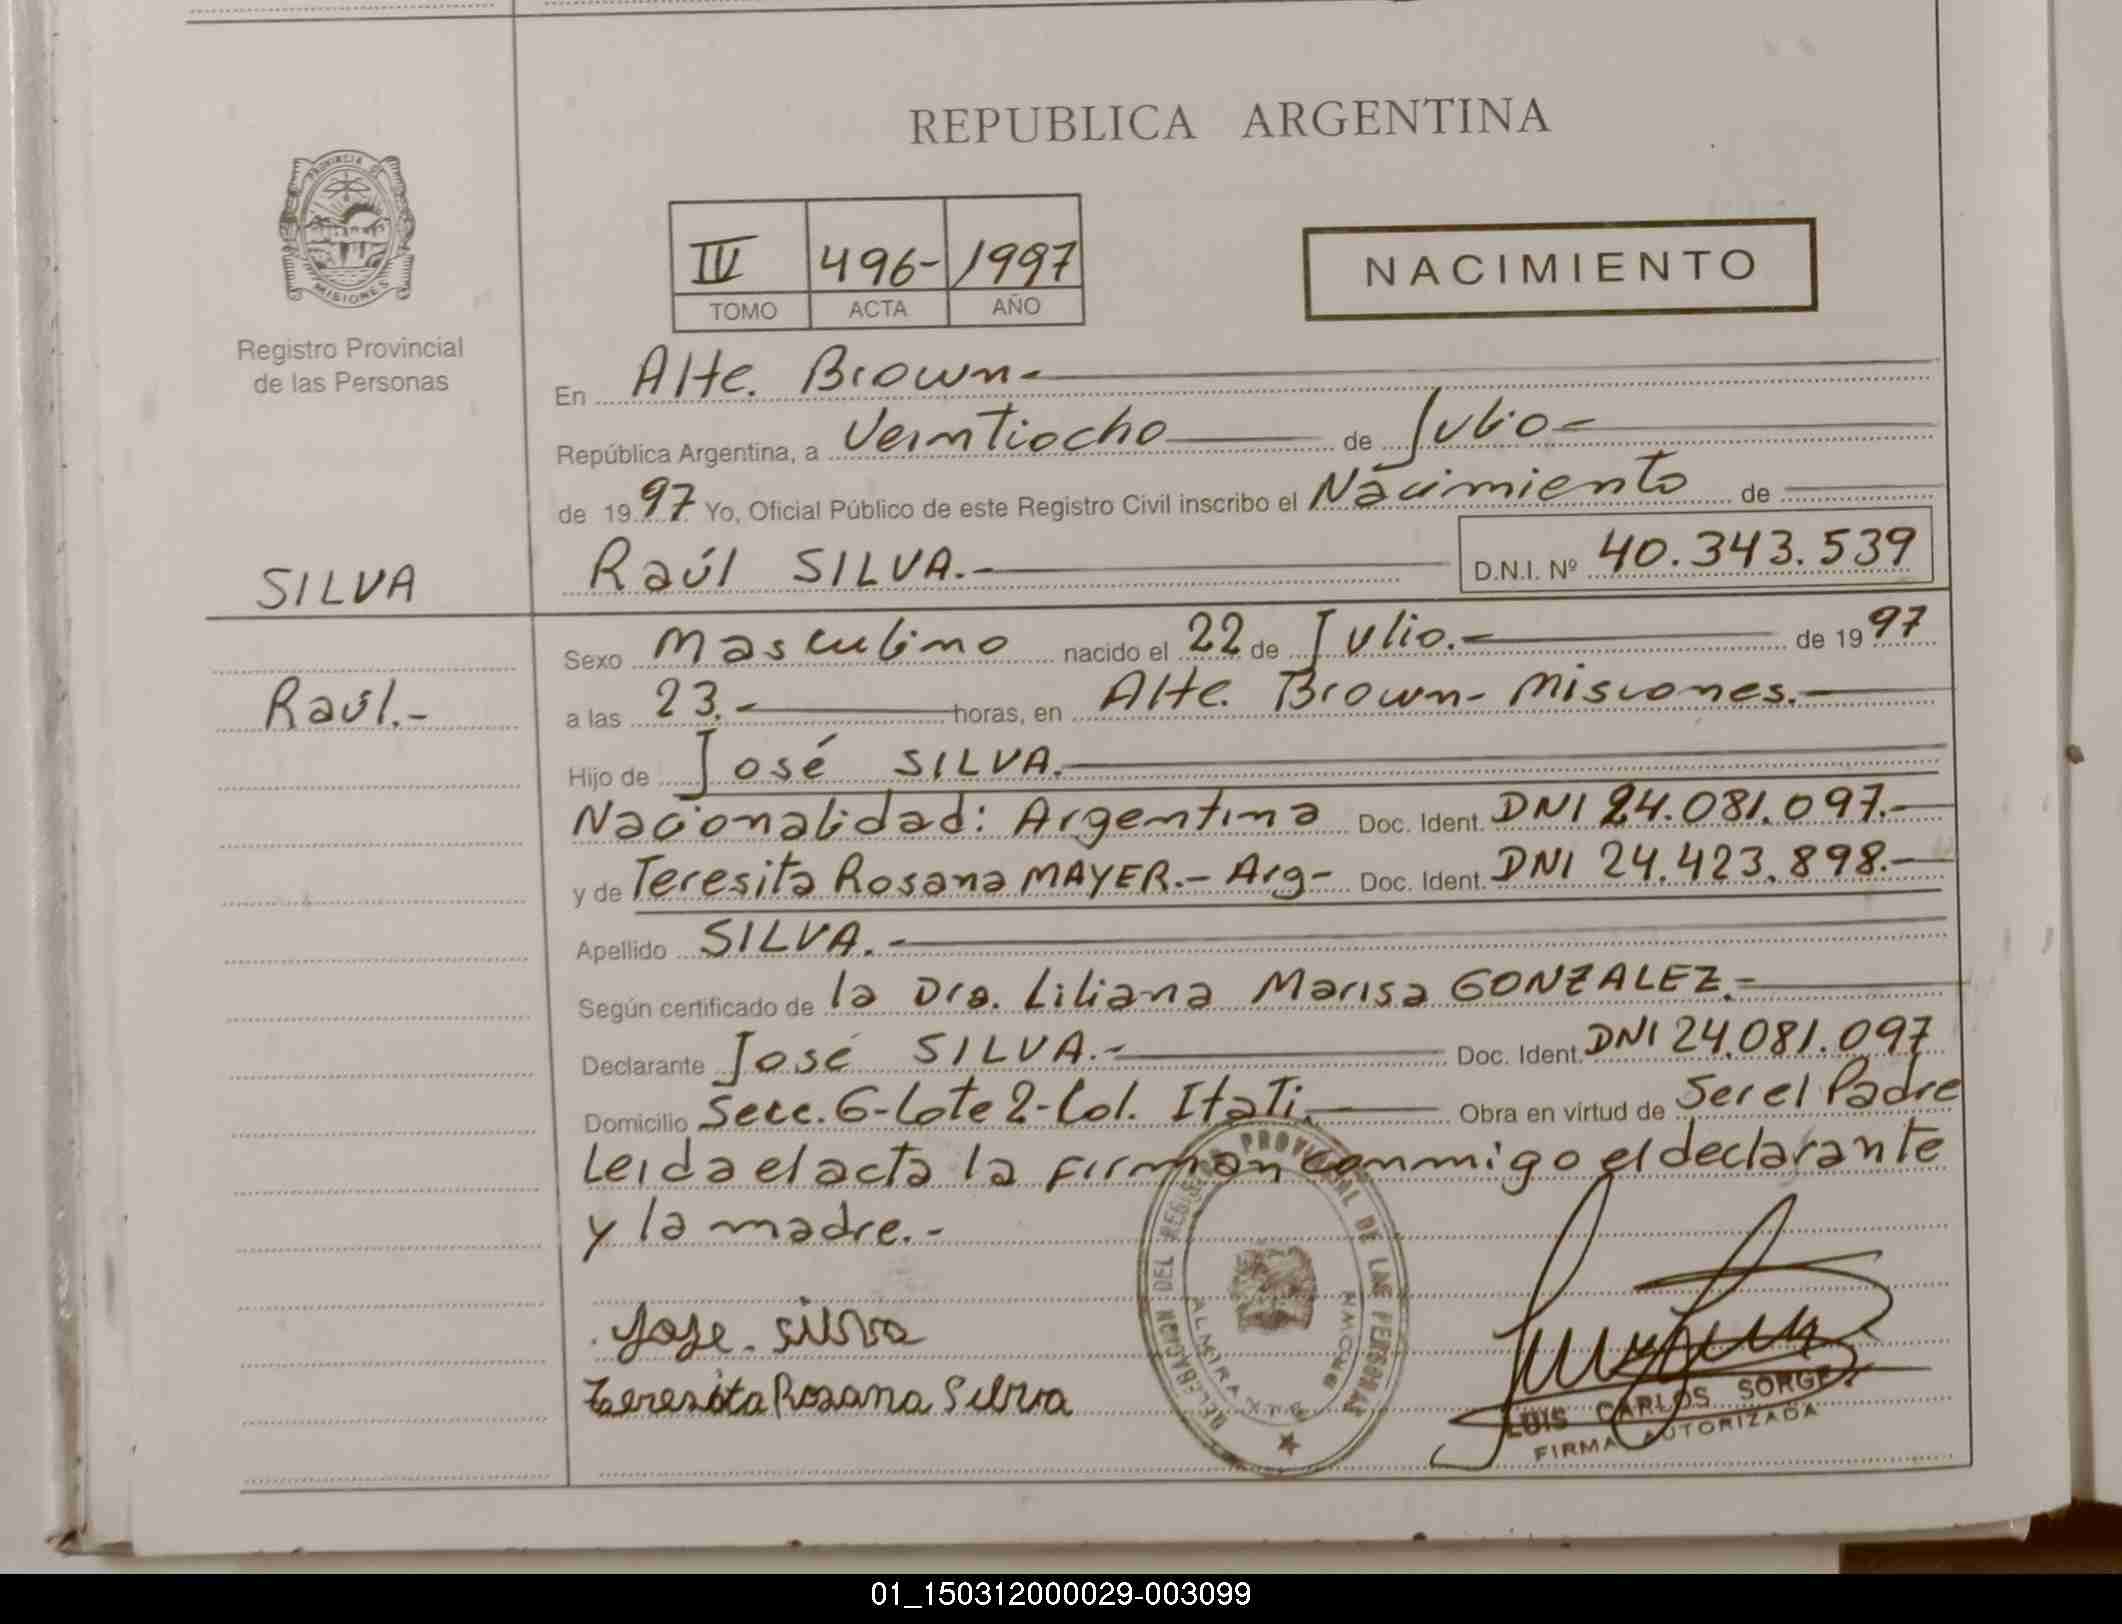 REPUBLICA ARGENTINA
PROVINCIA DE
MISIONES
Registro Provincial
de las Personas
IV 496- 1997
TOMO ACTA AÑO
NACIMIENTO
En Alte. Brown-
República Argentina, a Veintiocho de Julio-
de 1997 Yo, Oficial Público de este Registro Civil inscribo el Nacimiento de
SILVA
Raúl SILVA.- D.N.I. Nº 40.343.539
Sexo Masculino nacido el 22 de Julio.- de 1997
Raúl.-
a las 23.- horas, en Alte. Brown- Misiones.-
Hijo de José SILVA.-
Nacionalidad: Argentina Doc. Ident. DNI 24.081.097.-
y de Teresita Rosana MAYER.- Arg- Doc. Ident. DNI 24.423.898.-
Apellido SILVA.-
Según certificado de la Dra. Liliana Marisa GONZALEZ.-
Declarante José SILVA.- Doc. Ident. DNI 24.081.097
Domicilio Secc. 6-Lote 2-Col. Itati.- Obra en virtud de Ser el Padre
Leida el acta la firman conmmigo el declarante
y la madre.-
DELEGACION DEL REGISTRO PROVINCIAL DE LAS PERSONAS
ALMIRANTE BROWN
Jose. silva
Teresita Rosana Silva
LUIS CARLOS SORGE
FIRMA AUTORIZADA
01_150312000029-003099